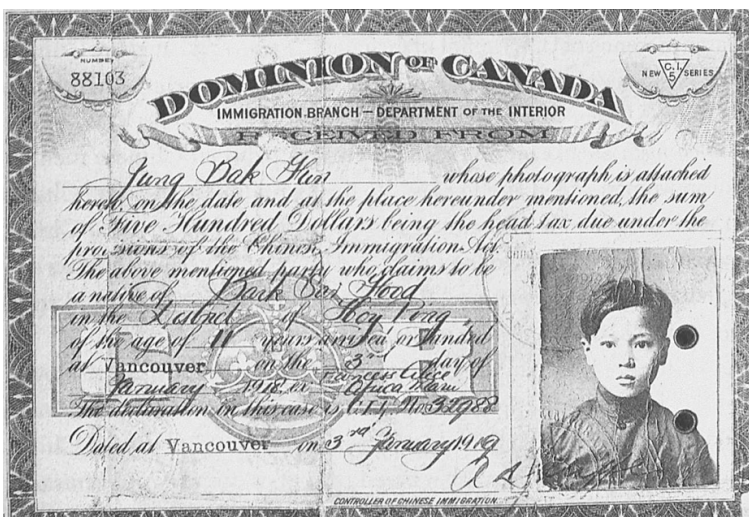 NUMBER
88103
DOMINION OF CANADA
NEW C.I. 5 SERIES
IMMIGRATION BRANCH — DEPARTMENT OF THE INTERIOR
RECEIVED FROM
Jung Bak Hun whose photograph is attached
hereto, on the date and at the place hereunder mentioned, the sum
of Five Hundred Dollars being the head tax due under the
provisions of the Chinese Immigration Act.
The above mentioned party who claims to be
a native of
in the of Hoy Ping
of the age of 11 years arrived or landed
at Vancouver on the 3rd day of
January 1918. ex Princess Alice Africa Maru
The declaration in this case is C.I.4 No 32988
Dated at Vancouver on 3rd January 1919
CONTROLLER OF CHINESE IMMIGRATION